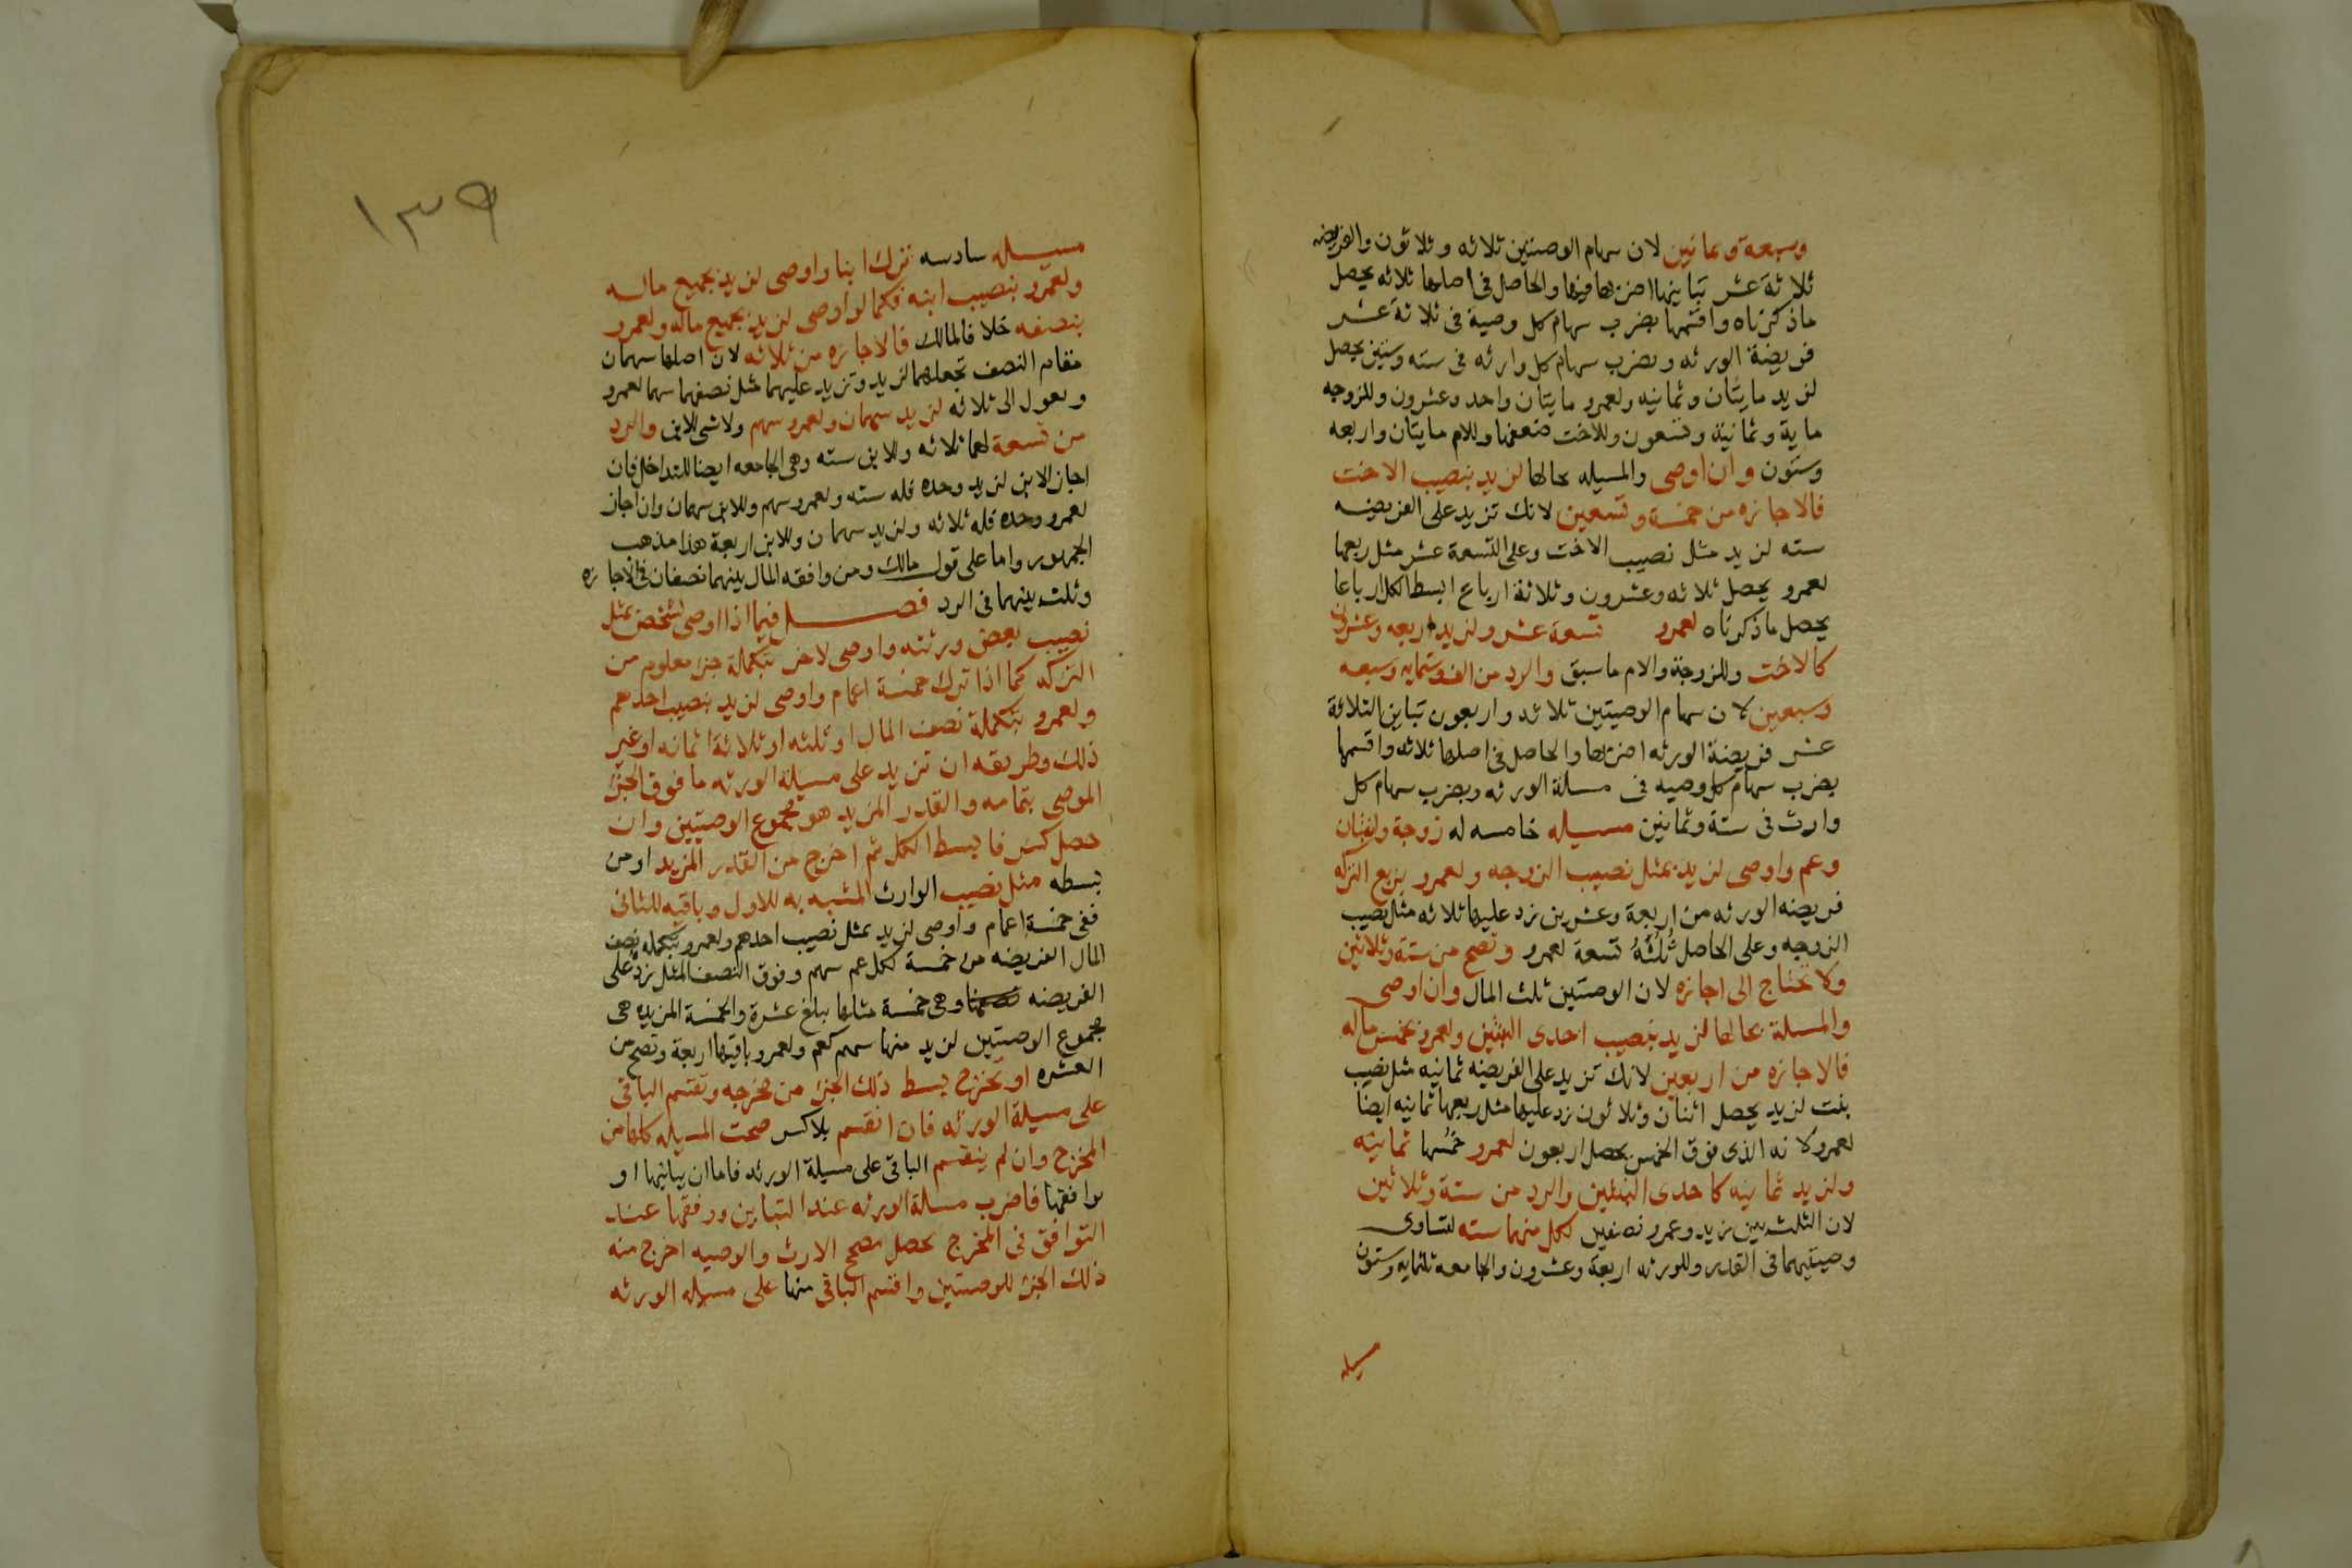 وسبعة وثمانين لان سهام الوصيتين ثلاثه وثلاثون والفريضه
ثلاثة عشر تباينها اضربها فيها والحاصل فى اصلها ثلاثه يحصل
ماذكرناه واقسمها بضرب سهام كل وصية فى ثلاثة عشر
فريضة الورثه وبضرب سهام كل وارثه فى سته وستين يحصل
لزيد مايتان وثمانيه ولعمرو مايتان واحد وعشرون وللزوجه
ماية وثمانية وتسعون وللاخت ضعفها وللام مايتان واربعه
وستون وان اوصى والمسيله بحالها لزيد بنصيب الاخت
فالاجازه من خمسة وتسعين لانك تزيد على الفريضه
سته لزيد مثل نصيب الاخت وعلى التسعة عشر مثل ربعها
لعمرو يحصل ثلاثه وعشرون وثلاثة ارباع ابسط الكل ارباعا
يحصل ماذكرناه لعمرو تسعة عشر ولزيد اربعه وعشرون
كالاخت وللزوجة والام ماسبق والرد من الف وستمايه وسبعه
وسبعين لان سهام الوصيتين ثلاثه واربعون تباين الثلاثة
عشر فريضة الورثه اضربها والحاصل فى اصلها ثلاثه واقسمها
بضرب سهام كل وصيه فى مسلة الورثه وبضرب سهام كل
وارث فى ستة وثمانين مسيله خامسه له زوجة وابنتان
وعم واوصى لزيد بمثل نصيب الزوجه ولعمرو بربع التركه
فريضه الورثه من اربعة وعشرين زد عليها ثلاثه مثل نصيب
الزوجه وعلى الحاصل ثُلُثَهُ تسعة لعمرو وتصح من ستة وثلاثين
ولا تحتاج الى اجازه لان الوصيتين ثلث المال وان اوصى
والمسلة بحالها لزيد بنصيب احدى البنتين ولعمرو بخمس ماله
فالاجازه من اربعين لانك تزيد على الفريضه ثمانيه مثل نصيب
بنت لزيد يحصل اثنان وثلاثون زد عليها مثل ربعها ثمانيه ايضا
لعمرو لانه الذى فوق الخمس يحصل اربعون لعمرو خمسها ثمانيه
ولزيد ثمانيه كاحدى البنتين والرد من ستة وثلاثين
لان الثلث بين زيد وعمرو نصفين لكل منهما سته لتساوى
وصيتيهما فى القدر وللورثه اربعة وعشرون والجامعه ثلثمايه وستون
مسيله
١٣٩
مسيله سادسه ترك ابنا واوصى لزيد بجميع ماله
ولعمرو بنصيب ابنه فكما لو اوصى لزيد بجميع ماله ولعمرو
بنصفه خلافا لمالك فالاجازه من ثلاثه لان اصلها سهمان
مقام النصف تجعلهما لزيد وتزيد عليهما مثل نصفهما سهما لعمرو
وتعول الى ثلاثه لزيد سهمان ولعمرو سهم ولاشى للابن والرد
من تسعة لهما ثلاثه وللابن سته وهى الجامعه ايضا للتداخل فان
اجاز الابن لزيد وحده فله سته ولعمرو سهم وللابن سهمان وان اجاز
لعمرو وحده فله ثلاثه ولزيد سهمان وللابن اربعة هذا مذهب
الجمهور واما على قول مالك ومن وافقه المال بينهما نصفان فى الاجازه
وثلث بينهما فى الرد فصل فيما اذا اوصى لشخص بمثل
نصيب بعض ورثته واوصى لاخر بتكملة جزء معلوم من
التركه كما اذا ترك خمسة اعمام واوصى لزيد بنصيب احدهم
ولعمرو بتكملة نصف المال او ثلثه او ثلاثة اثمانه او غير
ذلك وطريقه ان تزيد على مسيلة الورثه ما فوق الجزء
الموصى بتمامه والقدر المزيد هو مجموع الوصيتين وان
حصل كسر فابسط الكل ثم اخرج من القدر المزيد او من
بسطه مثل نصيب الوارث المشبه به للاول وباقيه للثانى
ففى خمسة اعمام واوصى لزيد بمثل نصيب احدهم ولعمرو بتكمله نصف
المال الفريضه من خمسة لكل عم سهم وفوق النصف المثل زد على
الفريضه وهى خمسة مثلها يبلغ عشرة والخمسة المزيده هى
مجموع الوصيتين لزيد منها سهم كعم ولعمرو باقيها اربعة وتصح من
العشره او تخرج بسط ذلك الجزء من مخرجه وتقسم الباقى
على مسيلة الورثه فان انقسم بلا كسر صحت المسيله كلها من
المخرج وان لم ينقسم الباقى على مسيلة الورثه فاما ان يباينها او
يوافقها فاضرب مسلة الورثه عند التباين ووفقها عند
التوافق فى المخرج يحصل مصحح الارث والوصيه اخرج منه
ذلك الجزء للوصيتين واقسم الباقى منها على مسيله الورثه